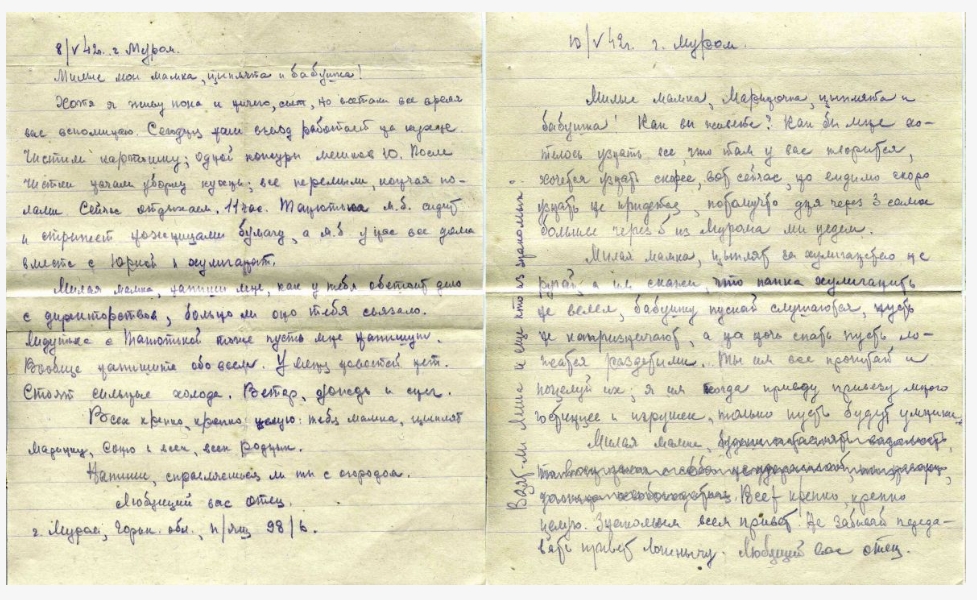 8/V 42г. г. Муром.
Милые мои мамка, цыплята и бабушка!
Хотя я живу пока и ничего, сыт, но всетаки все время
вас вспоминаю. Сегодня наш взвод работает на кухне.
Чистим картошку; одной кожуры мешков 10. После
чистки начали уборку кухни; все перемыли, кончая по-
лами. Сейчас отдыхаем. 11 час. Танюточка м.б. сидит
и стрижет ножницами бумагу, а м.б у нас все дома
вместе с Юрой и хулиганят.
Милая мамка, напиши мне, как у тебя обстоит дело
с директорством, больно ли оно тебя связало.
Лидутька с Танюткой пусть мне напишут.
Вообще напишите обо всем. У меня новостей нет.
Стоят сильные холода. Ветер, дождь и снег.
Всех крепко, крепко целую: тебя мамка, цыплят
Маришку, Соню и всех, всех родных.
Напиши, справляешься ли ты с огородом.
Любящий вас отец.
г. Муром, Горьк. обл., п/ящ 98/6.
10/V 42г. г. Муром.
Милые мамка, Мариночка, цыплята и
бабушка! Как вы живете? Как бы мне хо-
телось узнать все, что там у вас творится,
хочется узнать скорее, вот сейчас, но видимо скоро
узнать не придется, потому что дня через 3 самое
большее через 5 из Мурома мы уедем.
Милая мамка, цыплят за хулиганство не
ругай, а им скажи, что папка хулиганить
не велел, бабушку пускай слушаются, пусть
не капризничают, а на ночь спать пусть ло-
жатся раздетыми. Ты им все прочитай и
поцелуй их; я им когда приеду привезу много
гостинцев и игрушек, только пусть будут умницами.
Милая мамка,
Всех крепко, крепко
целую. Знакомым всем привет. Не забывай переда-
вать привет Любящий вас отец.
и еще кто из знакомых